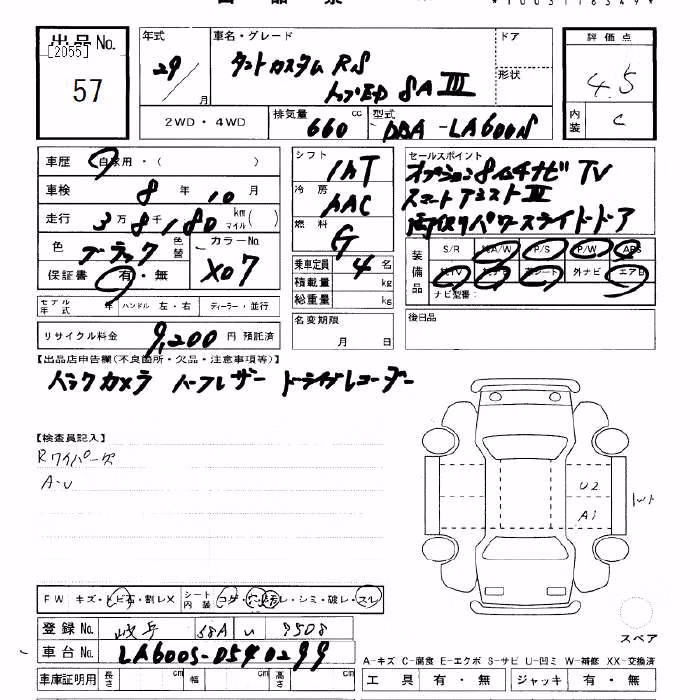 出品票
出品 No.
[2055]
57
年式
29 月
車名・グレード
タントカスタム RS
トップED SA III
ドア
形状
評価点
4.5
内装
C
2WD・4WD
排気量 660 cc
型式 DBA-LA600S
車歴 自家用・( )
車検 8 年 10 月
走行 3 万 8 千 180 km マイル ( )
色 ブラック 色替 カラー No. X07
保証書 有・無
モデル年式 年 ハンドル 左・右 ディーラー・並行
リサイクル料金 9,200 円 預託済
シフト IAT
冷房 AAC
燃料 G
乗車定員 4 名
積載量 kg
総重量 kg
名変期限
月 日
セールスポイント
オプション8インチナビ TV
スマートアシスト III
両側パワースライドドア
装備品
S/R 純A/W P/S P/W ABS
純TV 純ナビ 革シート 外ナビ エアB
ナビ型番:
後日品
【出品店申告欄(不良箇所・欠品・注意事項等)】
バックカメラ ハーフレザー ドライブレコーダー
【検査員記入】
Rワイパーズ
A・U
U2
A1
スペア
FW キズ・トビ石・割レX シート内装 コゲ・穴・汚レ・シミ・破レ・スレ
登録 No. 岐阜 58A い 9508
車台 No. LA600S-0540299
車庫証明用 長さ cm 幅 cm 高さ cm
A-キズ C-腐食 E-エクボ S-サビ U-凹ミ W-補修 XX-交換済
工具 有・無 ジャッキ 有・無